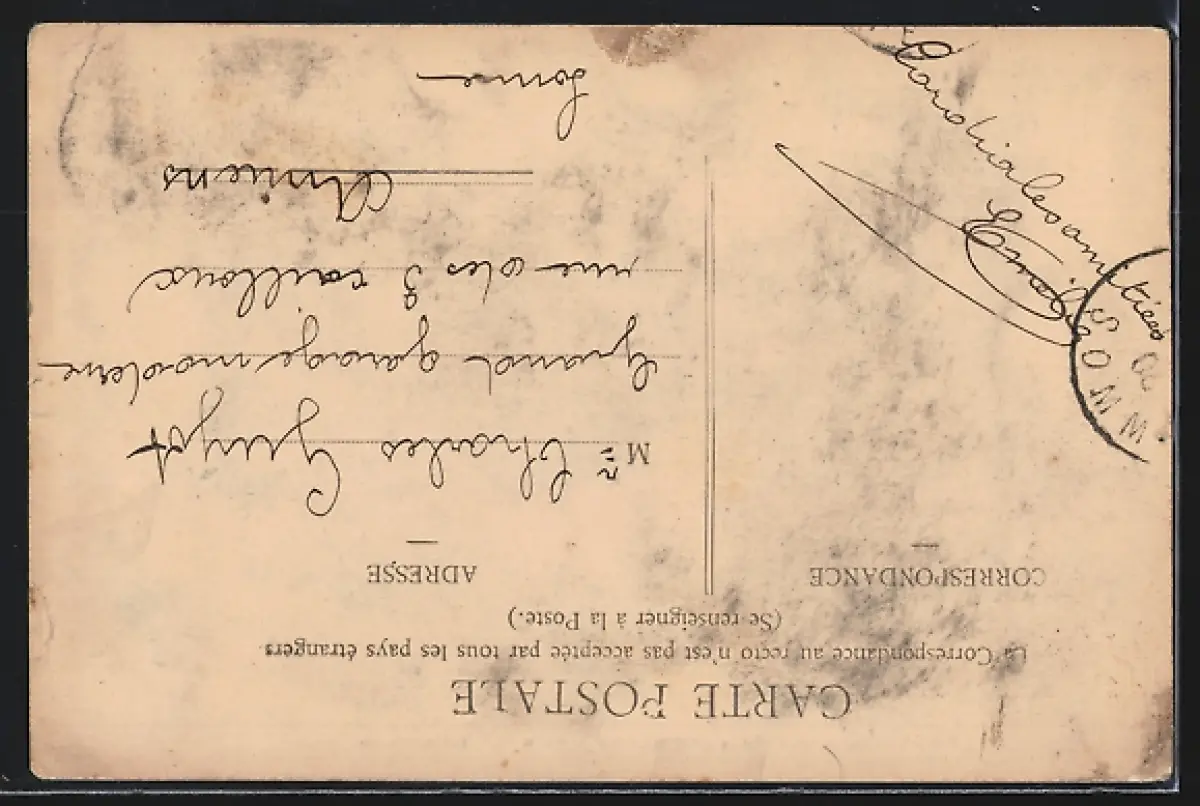 CARTE POSTALE
La Correspondance au recto n'est pas acceptée par tous les pays étrangers
(Se renseigner à la Poste.)
CORRESPONDANCE
ADRESSE
Mr Charles Guyot
Grand garage moderne
rue des 3 cailloux
Amiens
Somme
Cordiales amitiées
Emilia
SOMM